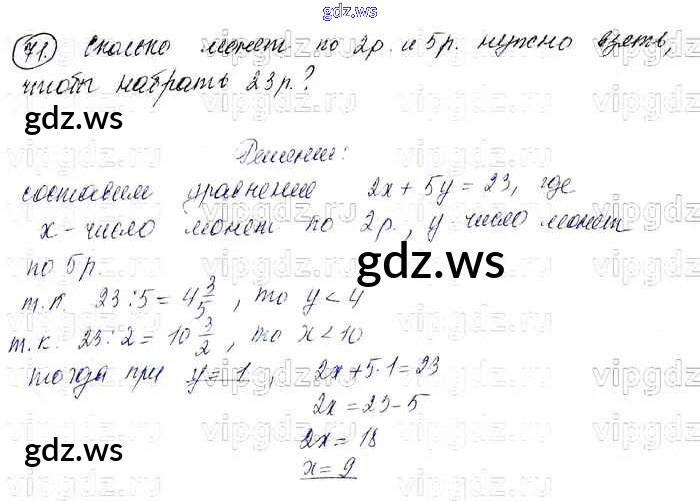 gdz.ws
71. Сколько монет по 2р. и 5р. нужно взять,
чтобы набрать 23р.?
gdz.ws
Решение:
составим уравнение 2x + 5y = 23, где
x - число монет по 2р., y - число монет
по 5р.
gdz.ws
т.к. 23 : 5 = 4 3/5, то y < 4
т.к. 23 : 2 = 10 3/2, то x < 10
тогда при y = 1, 2x + 5·1 = 23
2x = 23 - 5
gdz.ws
2x = 18
x = 9
gdz.ws